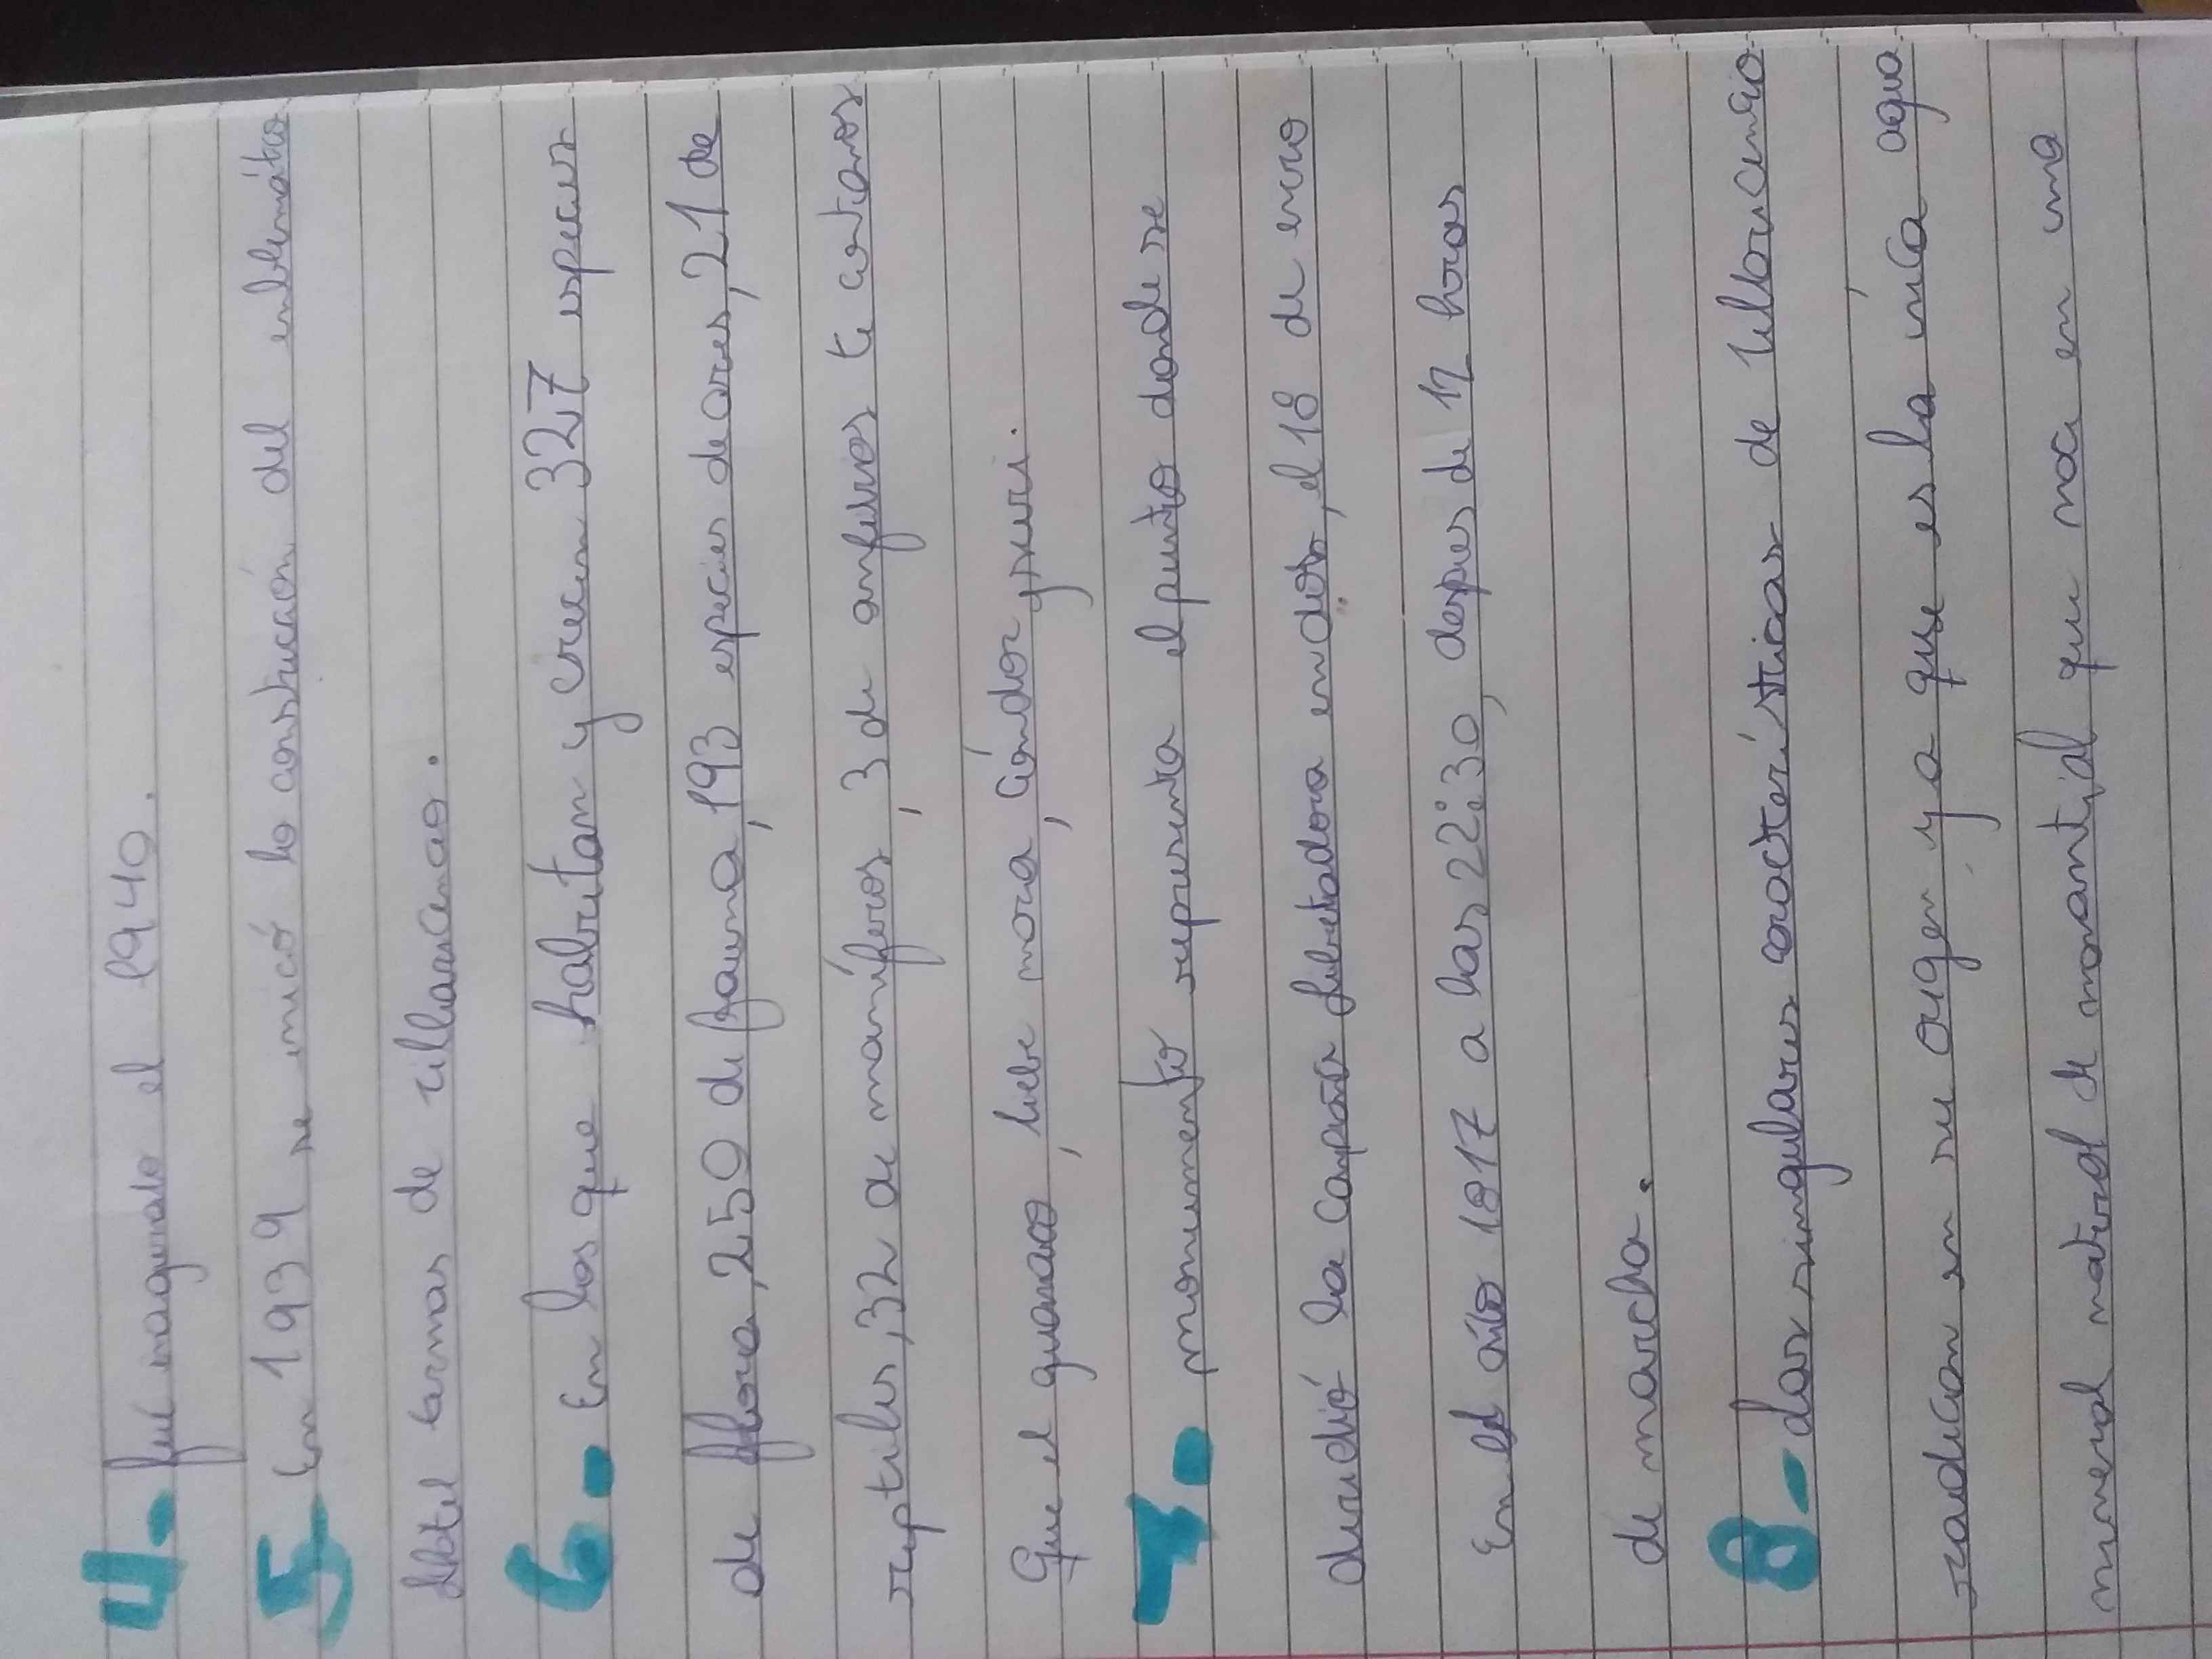 4. fué inagurado el 1940.
5. En 1939 se inicó la construcción del emblemático
Hotel termas de villavicencio.
6. En los que habitan y crecen 327 especies
de flora, 250 de fauna, 193 especies de aves, 21 de
reptiles, 32 de mamíferos, 3 de anfivios te contamos
Que el guanaco, liebe mora, Cóndor y puri.
7. monumento representa el punto donde se
dividió la Campaña libetadora en dos, el 18 de enero
En el año 1817 a las 22:30, despues de 12 horas
de marcha.
8- Las singulares caracteristicas de Villavicencio
radican en su origen y a que es la inica agua
mineral natural de manantial que nace en una